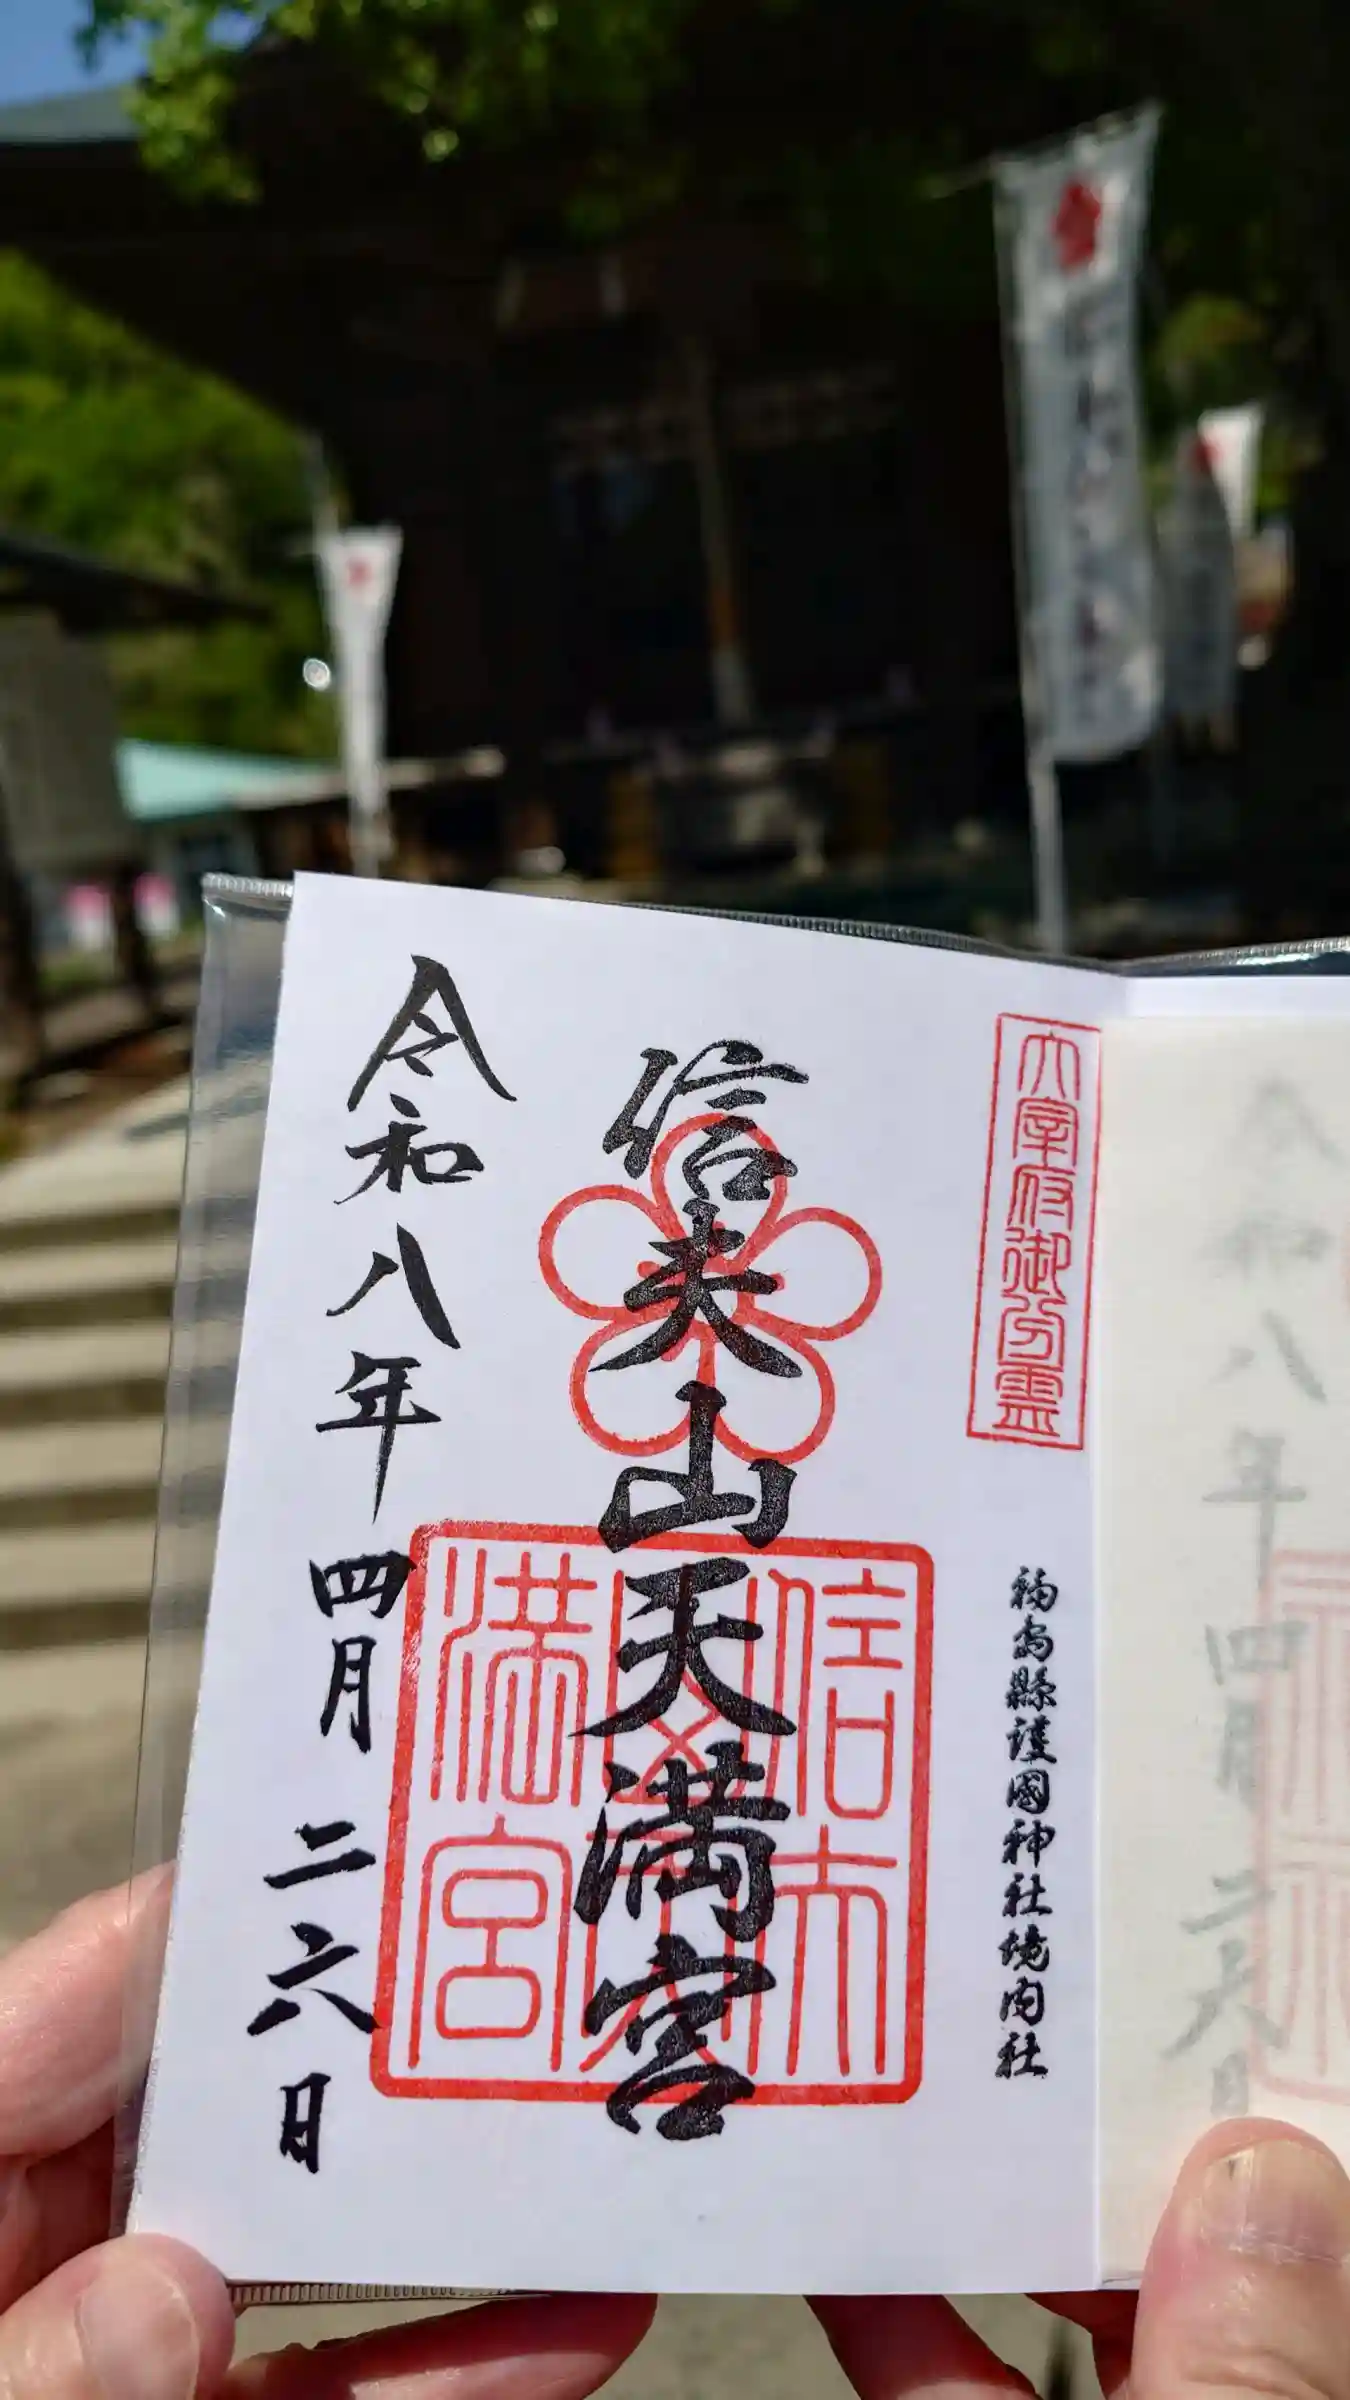 太宰府御分霊
福島縣護國神社境内社
信夫山天満宮
信夫山天満宮
令和八年四月二六日